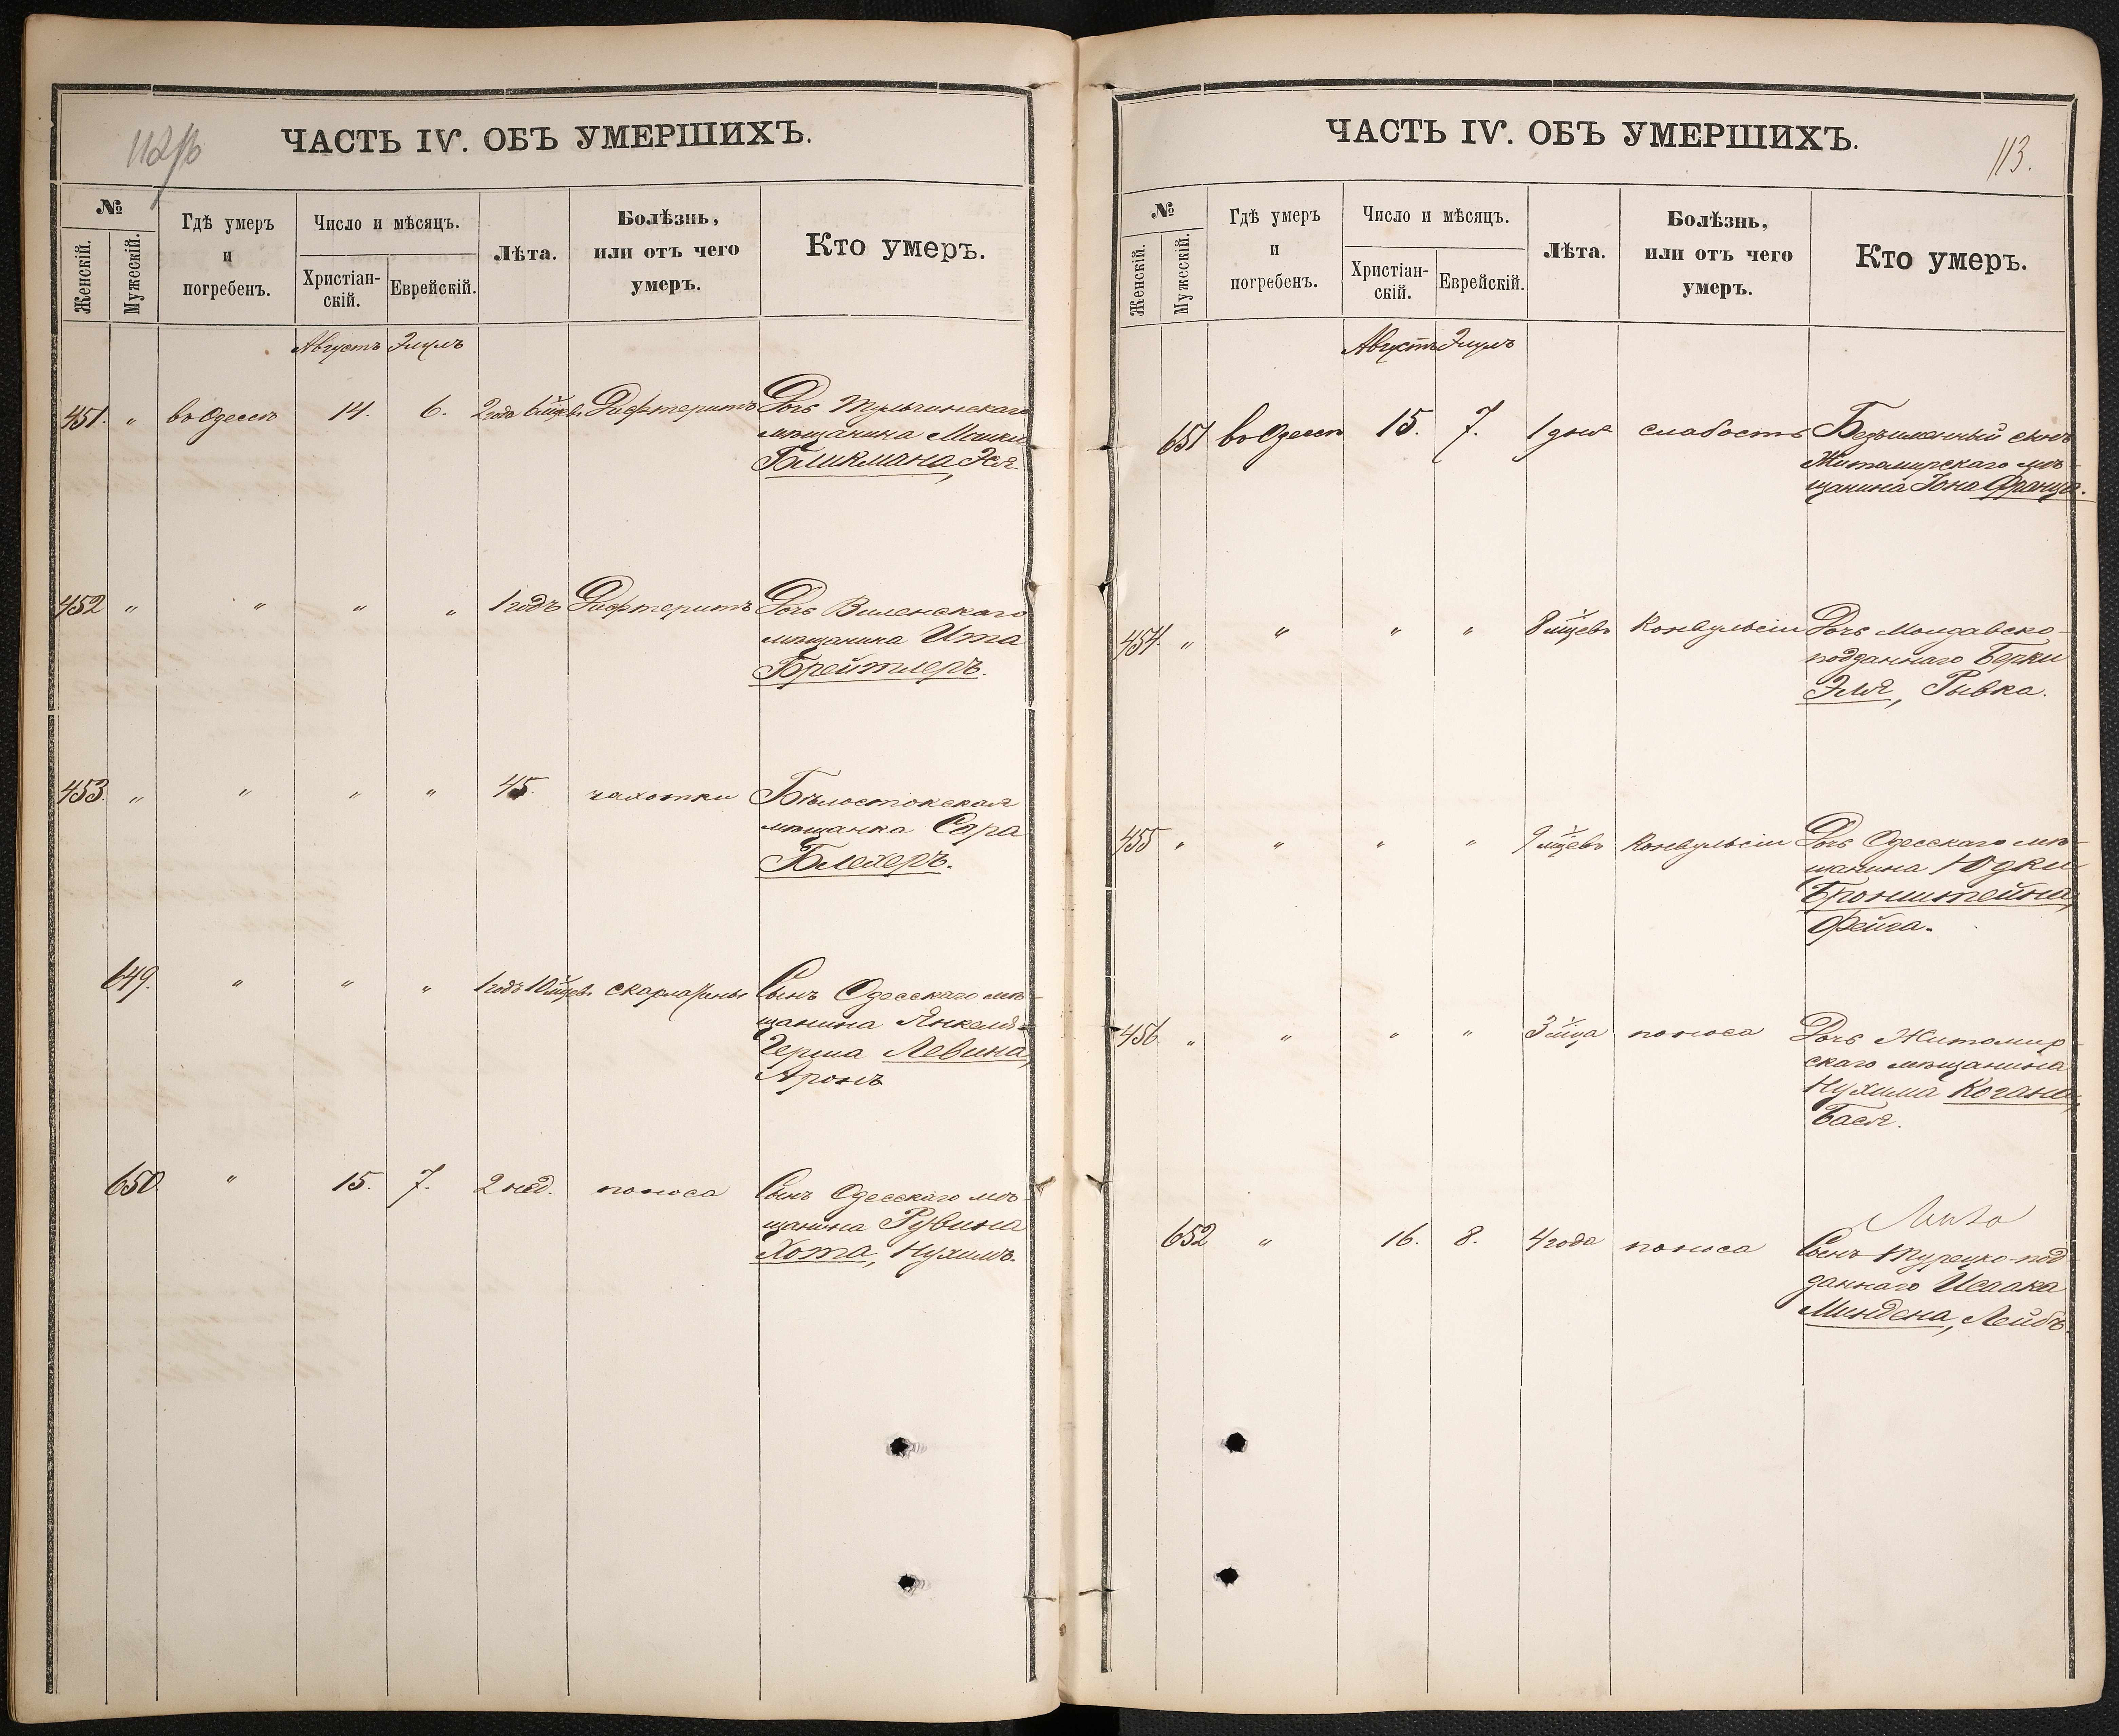 ЧАСТЬ IV. ОБЪ УМЕРШИХЪ.
№
Женскій.
Мужескій.
Гдѣ умеръ
и
погребенъ.
Число и мѣсяцъ.
Христіан-
скій.
Еврейскій.
Лѣта.
Болѣзнь,
или отъ чего
умеръ.
Кто умеръ.
Августъ Элулъ
451. " въ Одессѣ 14. 6. 2 года 6 мцвъ Дифтеритъ Дочь Тульчинскаго
мѣщанина Мошки
Бликмана, Эся.
452 " " " " 1 годъ Дифтеритъ Дочь Виленскаго
мѣщанина Ита
Брейтлеръ.
453. " " " " 45. чахотки Бѣлостокская
мѣщанка Сара
Блехеръ.
649. " " " 1 годъ 10 мцевъ скарлатины Сынъ Одесскаго мѣ-
щанина Янкеля-
Герша Левина,
Аронъ
650. " 15. 7. 2 нед. поноса Сынъ Одесскаго мѣ-
щанина Рувина
Хота, Нухимъ.
ЧАСТЬ IV. ОБЪ УМЕРШИХЪ.
113.
№
Женскій.
Мужескій.
Гдѣ умеръ
и
погребенъ.
Число и мѣсяцъ.
Христіан-
скій.
Еврейскій.
Лѣта.
Болѣзнь,
или отъ чего
умеръ.
Кто умеръ.
Августъ Элулъ
651 въ Одессѣ 15. 7. 1 дня слабость Безъименный сынъ
Житомирскаго мѣ-
щанина Іона Франца.
454. " " " " 8 мцевъ Конвульсіи Дочь Молдавско-
подданнаго Берки
Эля, Рывка.
455 " " " " 9 мцевъ Конвульсіи Дочь Одесскаго мѣ-
щанина Юдки
Бронштейна,
Фейга.
456 " " " " 3 мца поноса Дочь Житомир-
скаго мѣщанина
Нухима Когана,
Бася.
652 " 16. 8. 4 года поноса Сынъ Турецко-под-
даннаго Исаака
Миндена, Лейбъ.